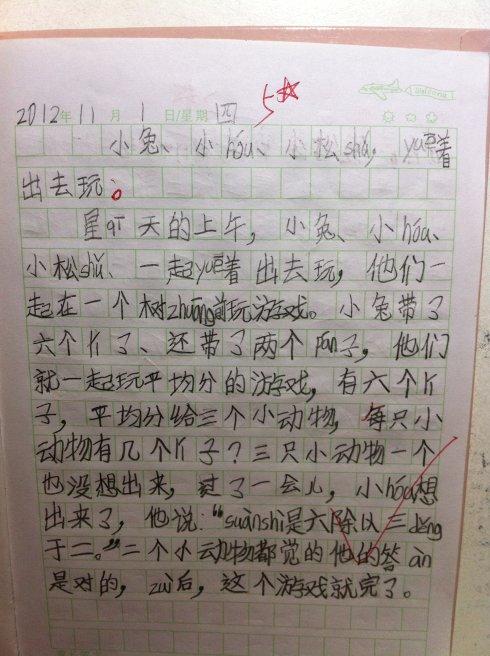 Welcome
2012年11月1日/星期四
5☆
小兔、小hóu、小松shǔ, yuē着
出去玩。
星qī天的上午，小兔、小hóu、
小松shǔ、一起yuē着出去玩，他们一
起在一个树zhuāng前玩游戏。小兔带了
六个片子、还带了两个pán子，他们
就一起玩平均分的游戏，有六个片
子，平均分给三个小动物，每只小
动物有几个片子？三只小动物一个
也没想出来，过了一会儿，小hóu想
出来了，他说：“suànshì是六除以三děng
于二。”二个小动物都觉的他的答àn
是对的，zuì后，这个游戏就完了。